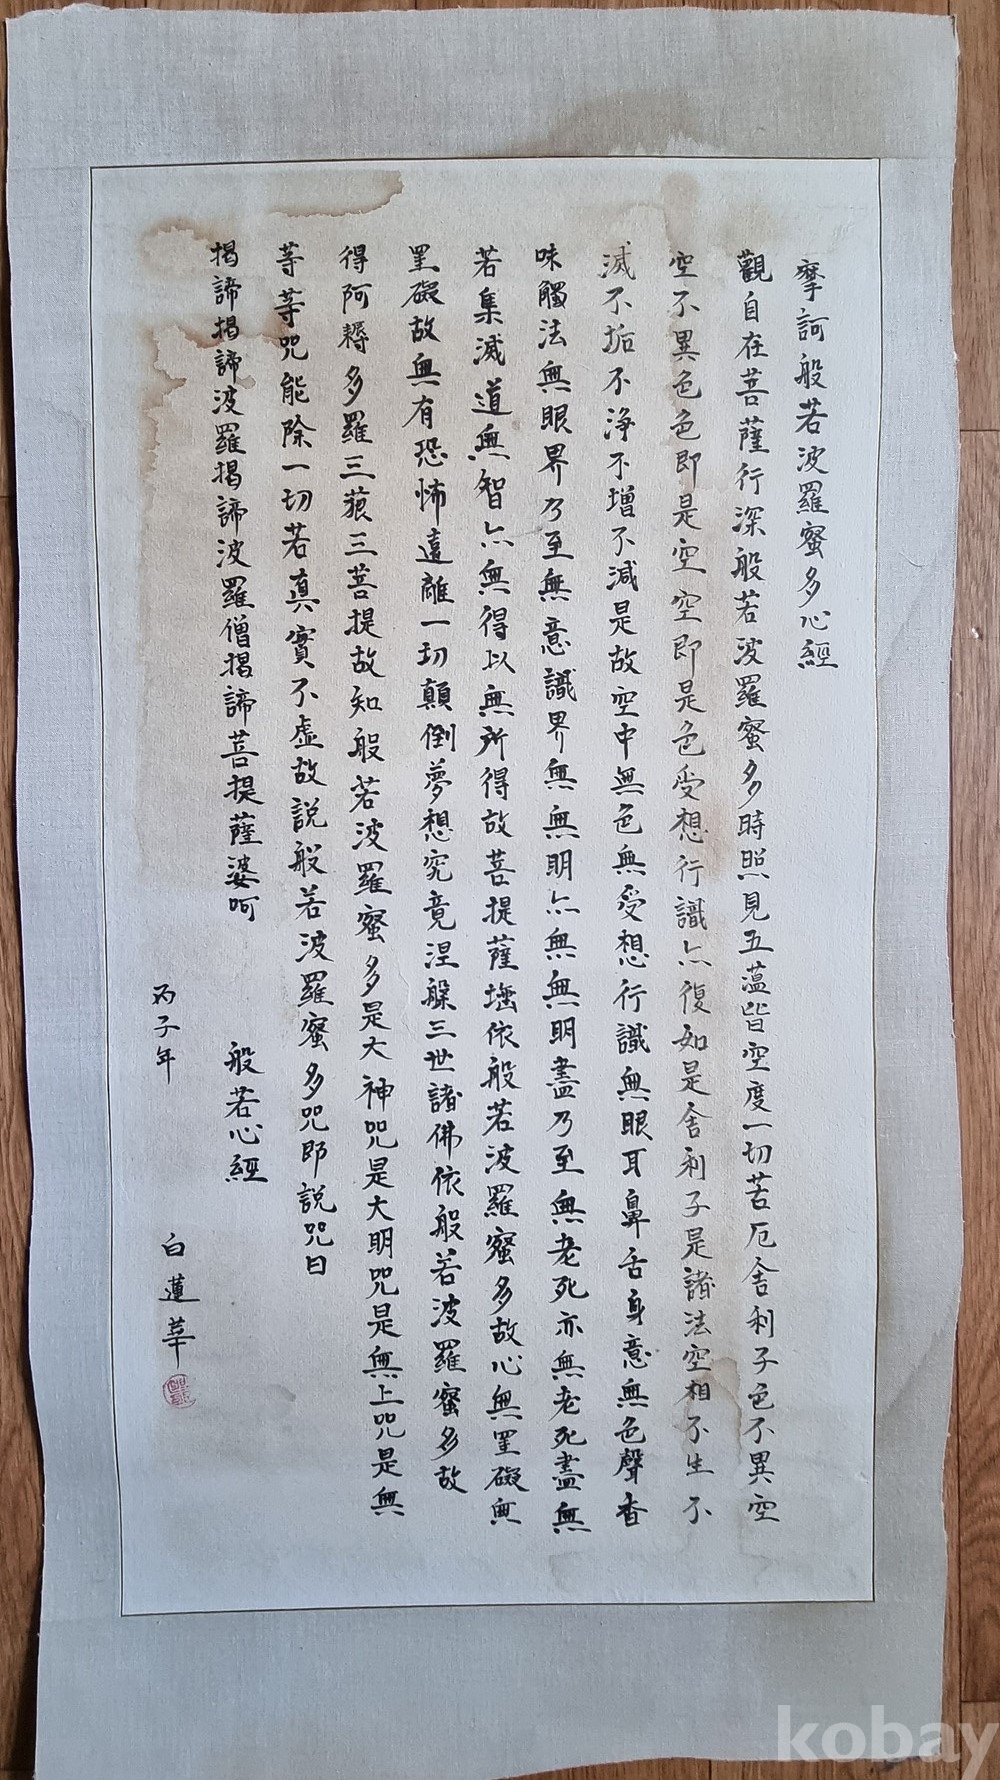 摩訶般若波羅蜜多心經
觀自在菩薩行深般若波羅蜜多時照見五蘊皆空度一切苦厄舍利子色不異空
空不異色色即是空空即是色受想行識亦復如是舍利子是諸法空相不生不
滅不垢不淨不增不減是故空中無色無受想行識無眼耳鼻舌身意無色聲香
味觸法無眼界乃至無意識界無無明亦無無明盡乃至無老死亦無老死盡無
苦集滅道無智亦無得以無所得故菩提薩埵依般若波羅蜜多故心無罣礙無
罣礙故無有恐怖遠離一切顛倒夢想究竟涅槃三世諸佛依般若波羅蜜多故
得阿耨多羅三藐三菩提故知般若波羅蜜多是大神咒是大明咒是無上咒是無
等等咒能除一切苦真實不虛故說般若波羅蜜多咒即說咒曰
揭諦揭諦波羅揭諦波羅僧揭諦菩提薩婆呵 般若心經
丙子年 白蓮華
kobay